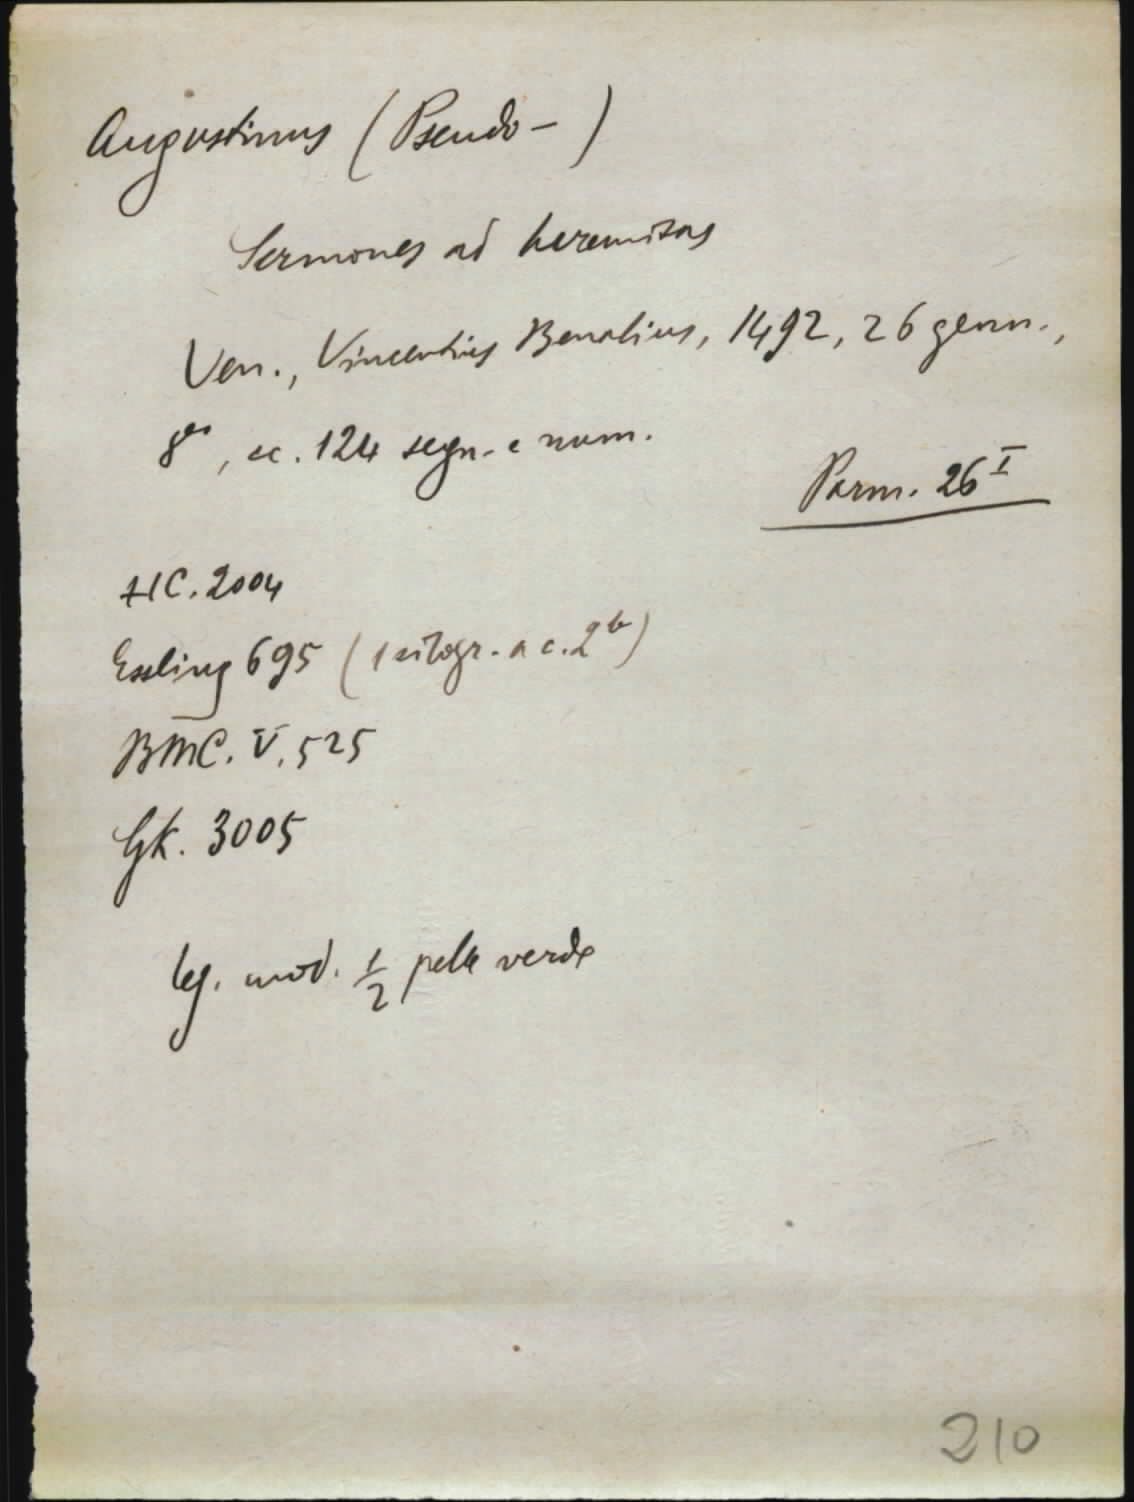 Augustinus (Pseudo-)
Sermones ad heremitas
Ven., Vincentius Benalius, 1492, 26 genn.,
8º, cc. 124 segn. e num.
Parm. 26 I
HC. 2004
Essling 695 (1 silogr. a c. 2b)
BMC. V. 525
Gk. 3005
leg. mod. 1/2 pelle verde
210